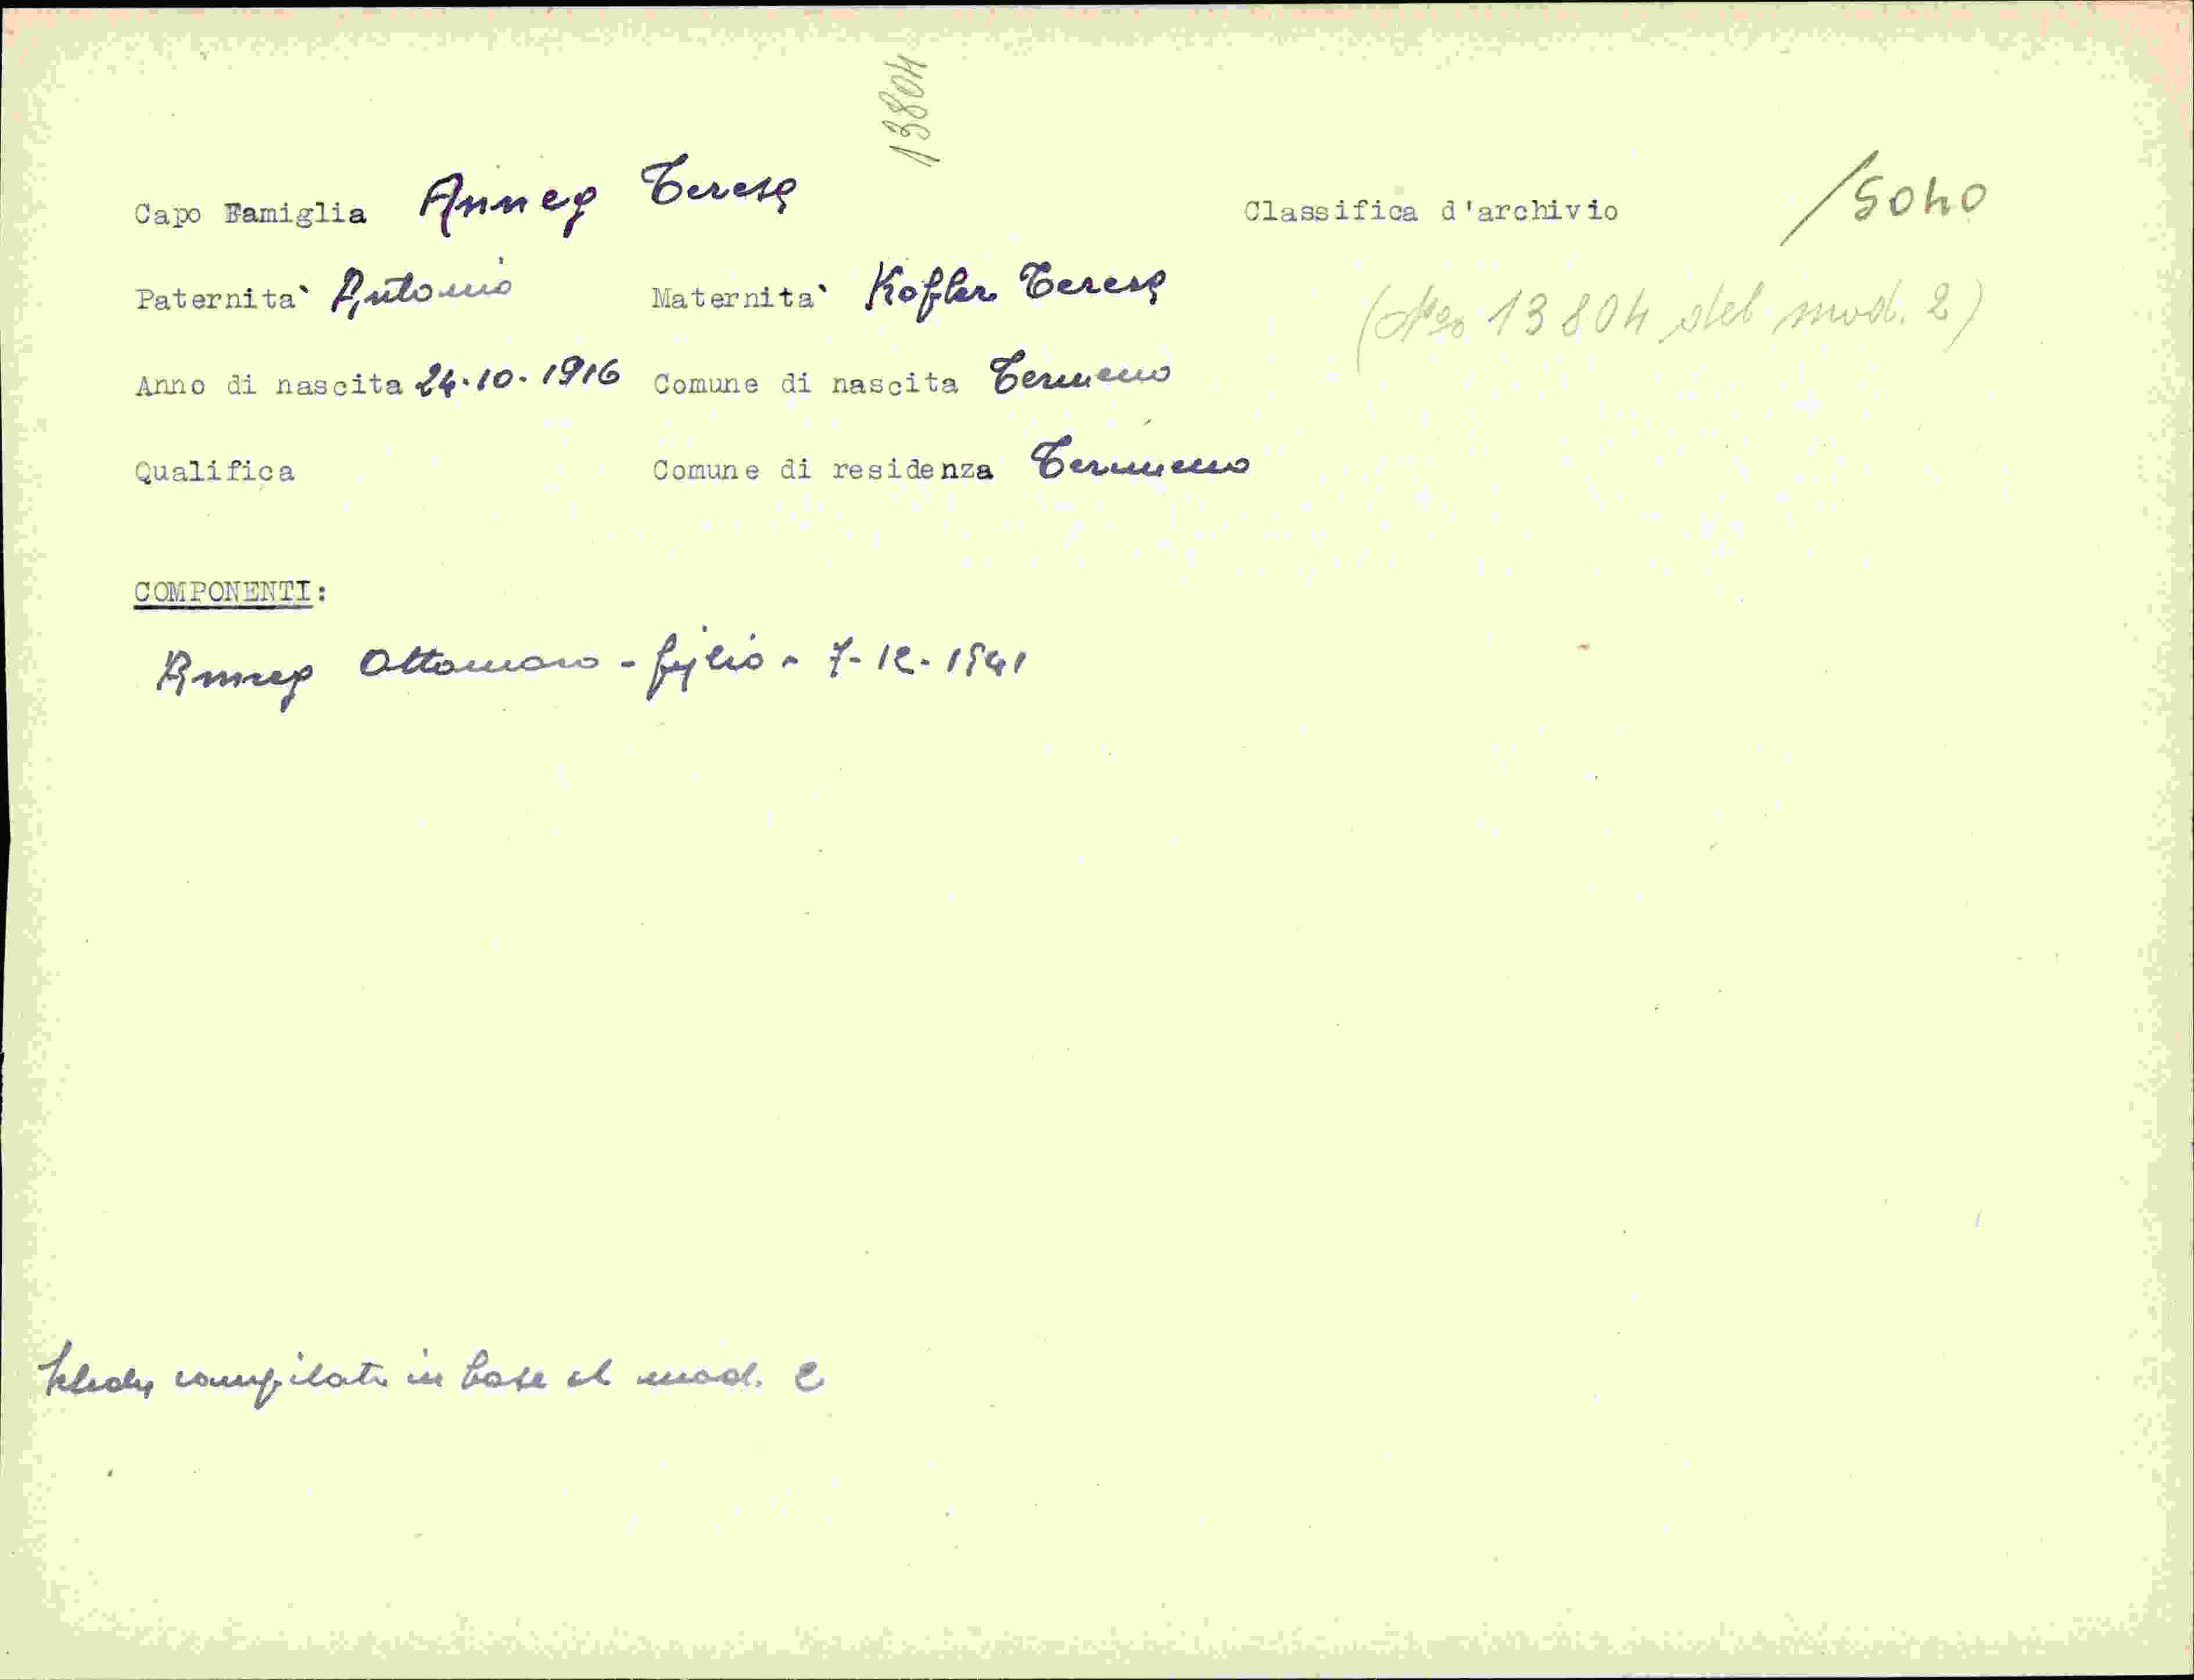 13804
Capo Famiglia Anneg Teresa Classifica d'archivio /5040
Paternita` Antonio Maternita` Kofler Teresa (No 13804 del mod. 2)
Anno di nascita 24.10.1916 Comune di nascita Termeno
Qualifica Comune di residenza Termeno
COMPONENTI:
Anneg Ottomaro - figlio - 7-12-1941
Scheda compilata in base al mod. 2